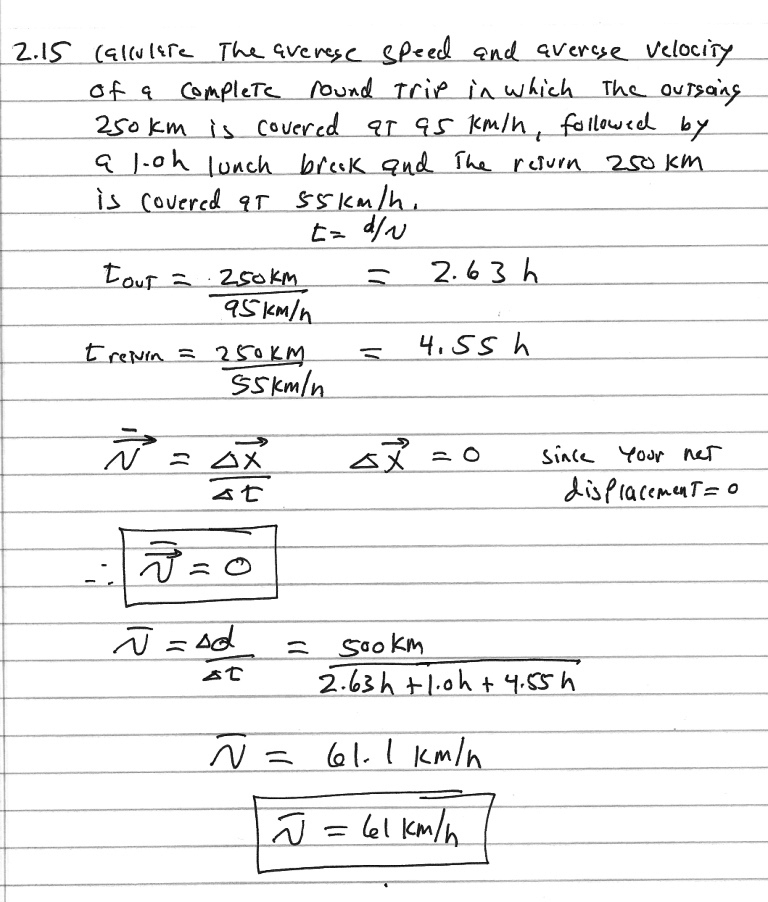 2.15 Calculate The average speed and average velocity
of a complete round trip in which The outgoing
250 km is covered at 95 km/h, followed by
a 1.0h lunch break and The return 250 km
is covered at 55 km/h.
t = d/v
t out = 250 km / 95 km/h = 2.63 h
t return = 250 km / 55 km/h = 4.55 h
v̄⃗ = Δx⃗ / Δt Δx⃗ = 0 since your net
displacement = 0
∴ v̄⃗ = 0
v̄ = Δd / Δt = 500 km / 2.63 h + 1.0h + 4.55 h
v̄ = 61.1 km/h
v̄ = 61 km/h